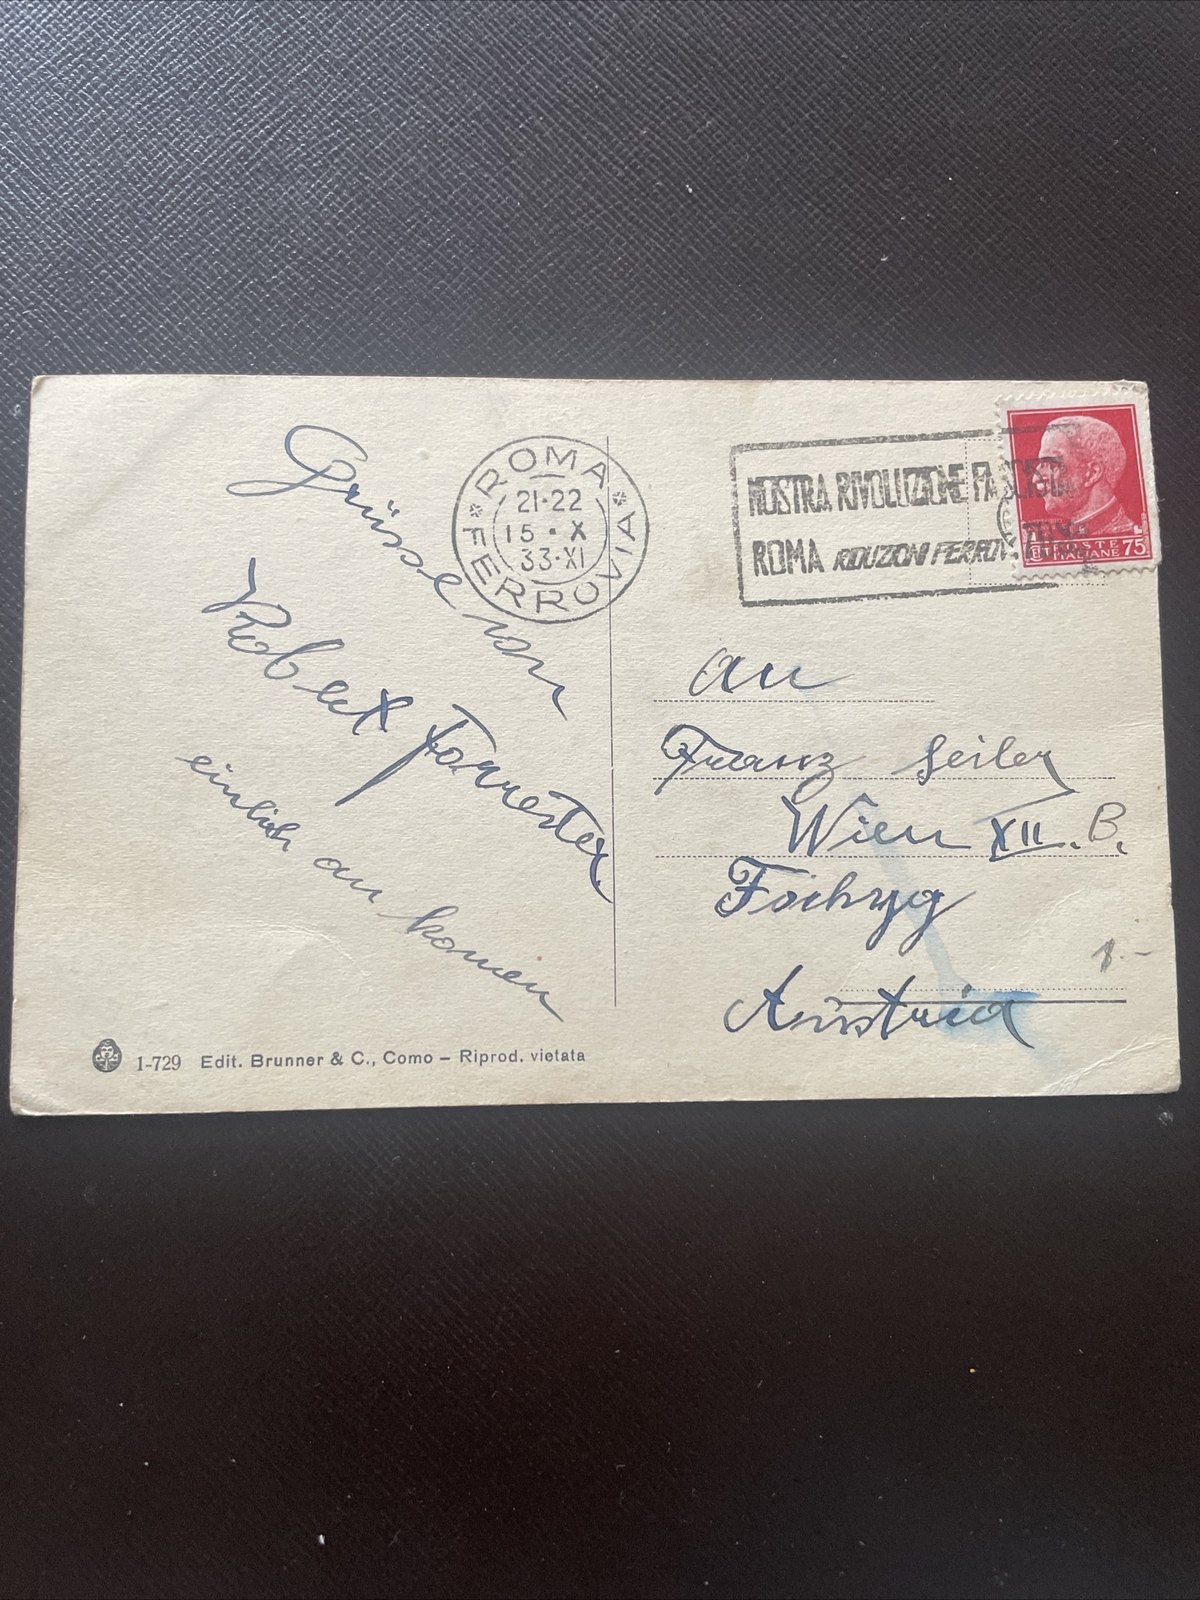 Grüsse von
Robert Forrester
einlich an komen
ROMA
21-22
15 · X
33·XI
FERROVIA
MOSTRA RIVOLUZIONE FASCISTA
ROMA RIDUZIONI FERROV. 70%
POSTE
ITALIANE 75
an
Franz Seiler
Wien XII. B.
Austria
1.-
1-729 Edit. Brunner & C., Como – Riprod. vietata